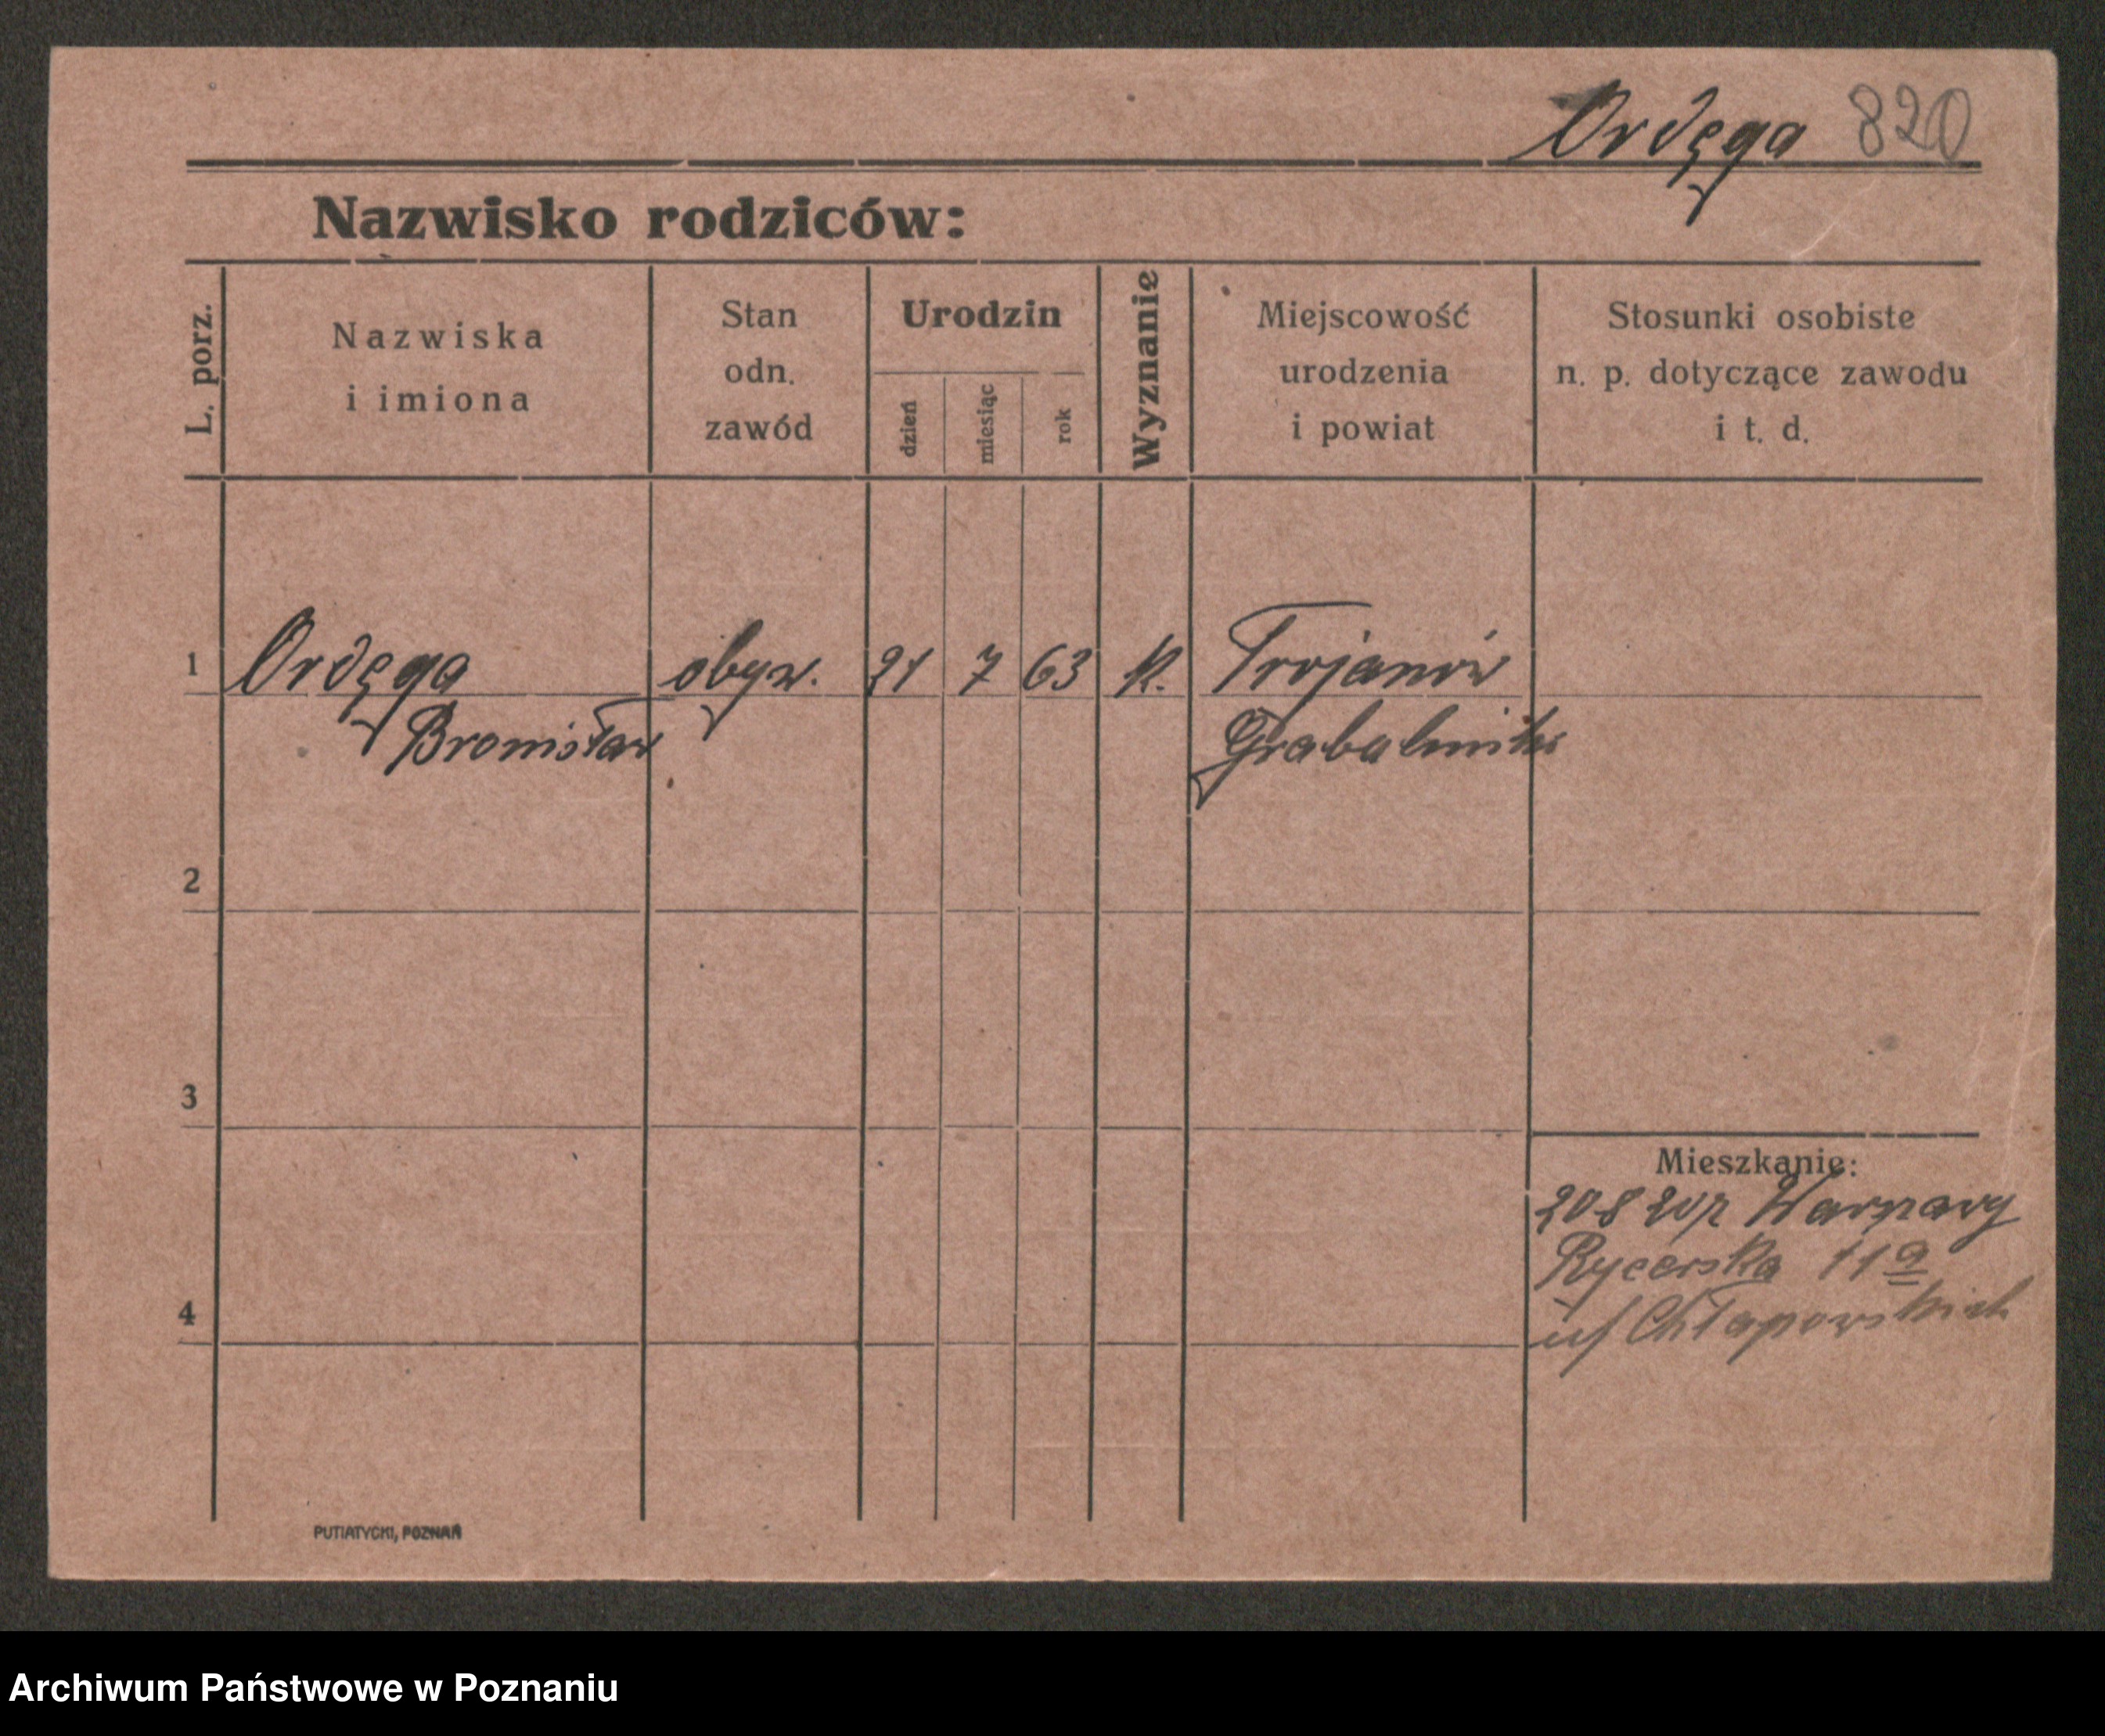 Ordęga 820
Nazwisko rodziców:
L. porz.
Nazwiska
i imiona
Stan
odn.
zawód
Urodzin
dzień
miesiąc
rok
Wyznanie
Miejscowość
urodzenia
i powiat
Stosunki osobiste
n. p. dotyczące zawodu
i t. d.
1 Ordęga obyw. 21 7 63 k. Trojanów
Bronisław
2
3
4
Mieszkanie:
20 8 20 z Warszawy
Rycerska 11a
u/ Chłapowskich
PUTIATYCKI, POZNAŃ
Archiwum Państwowe w Poznaniu